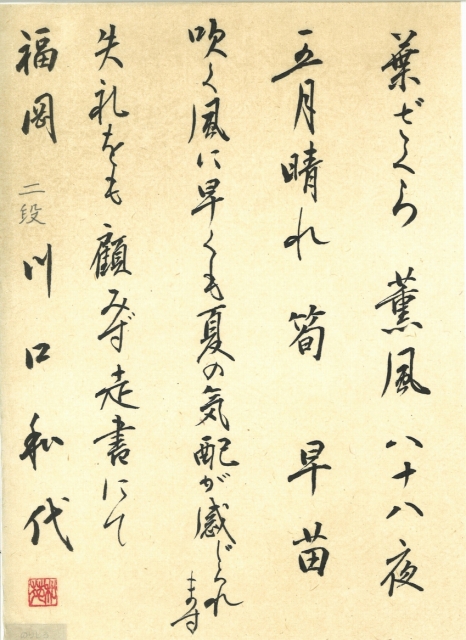 葉ざくら 薫風 八十八夜
五月晴れ 筍 早苗
吹く風に早くも夏の気配が感じられます
失礼をも顧みず走書にて
福岡 二段 川口和代